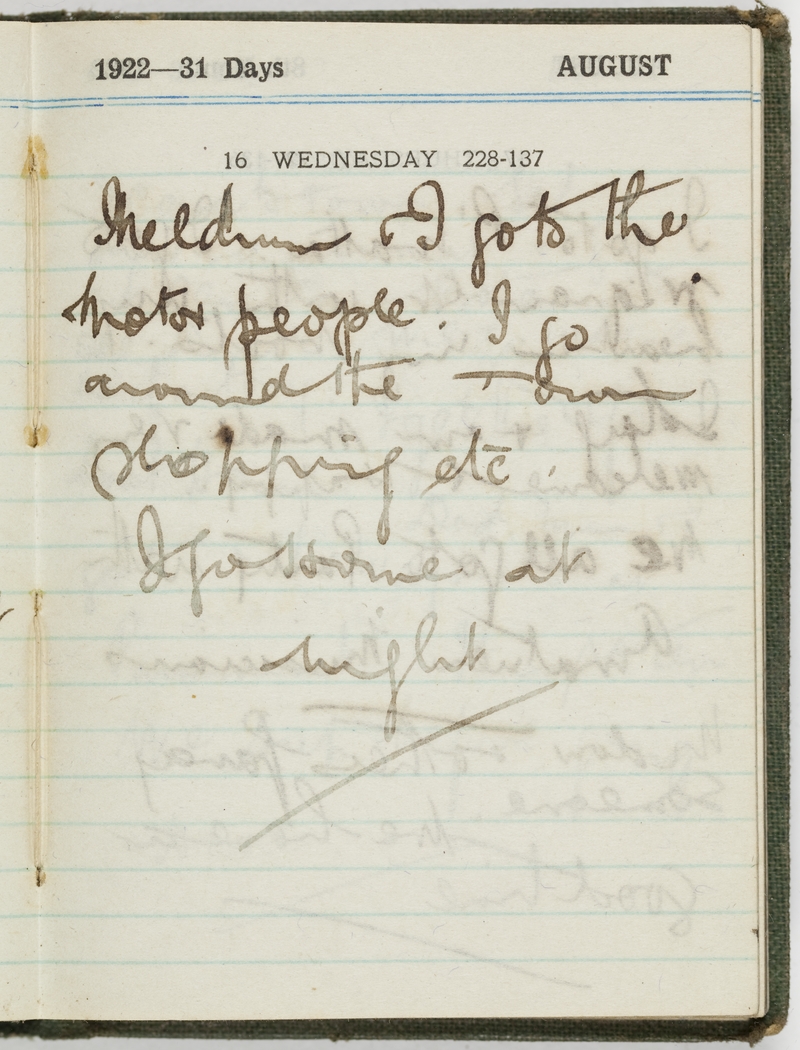 1922—31 Days AUGUST
16 WEDNESDAY 228-137
Meldrum & I go to the
motor people. I go
around the Town
shopping etc.
I go home at
night